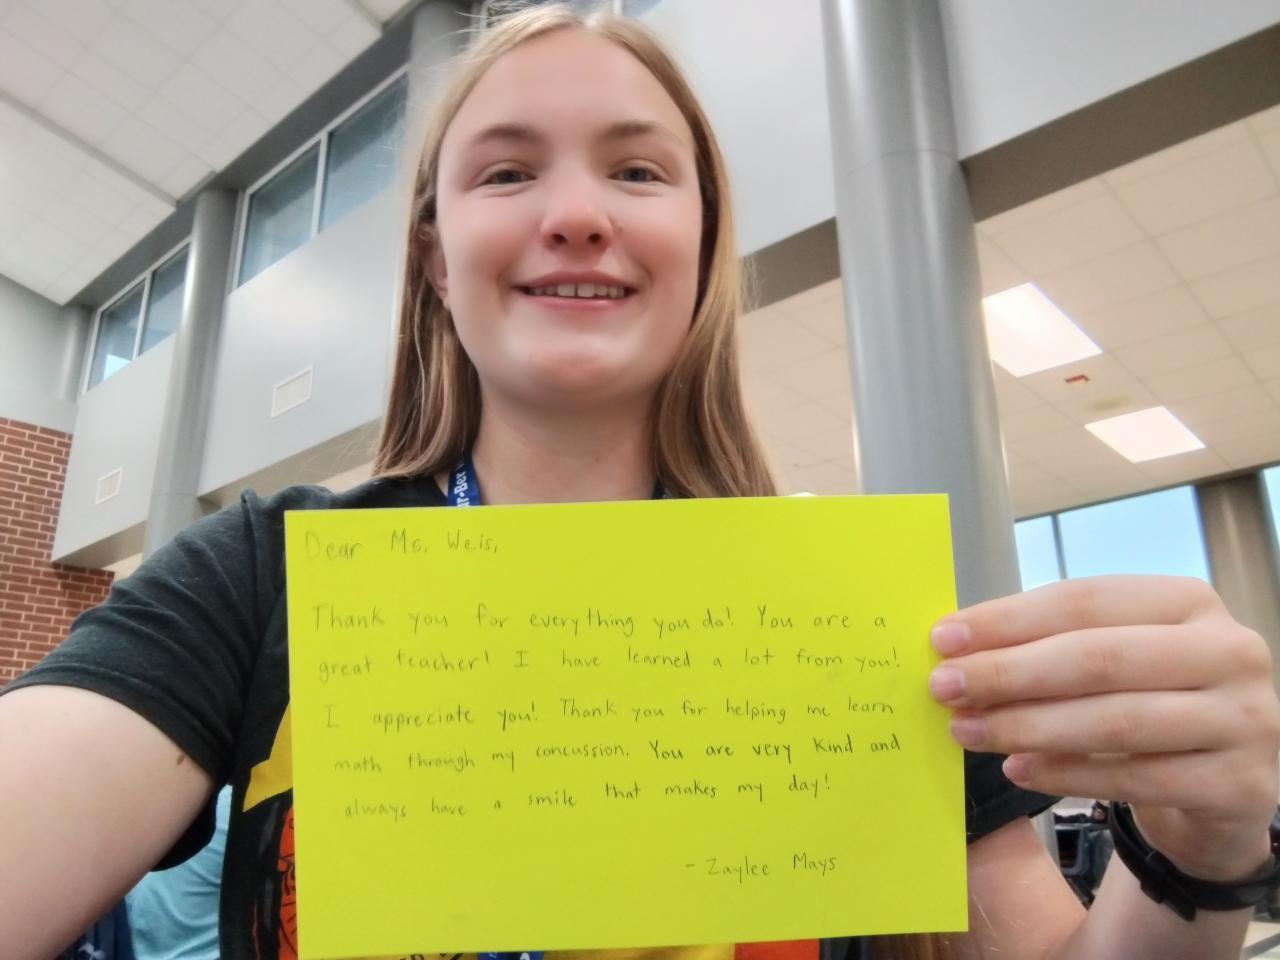 ur-Ber
Dear Ms. Weis,
Thank you for everything you do! You are a
great teacher! I have learned a lot from you!
I appreciate you! Thank you for helping me learn
math through my concussion. You are very kind and
always have a smile that makes my day!
- Zaylee Mays